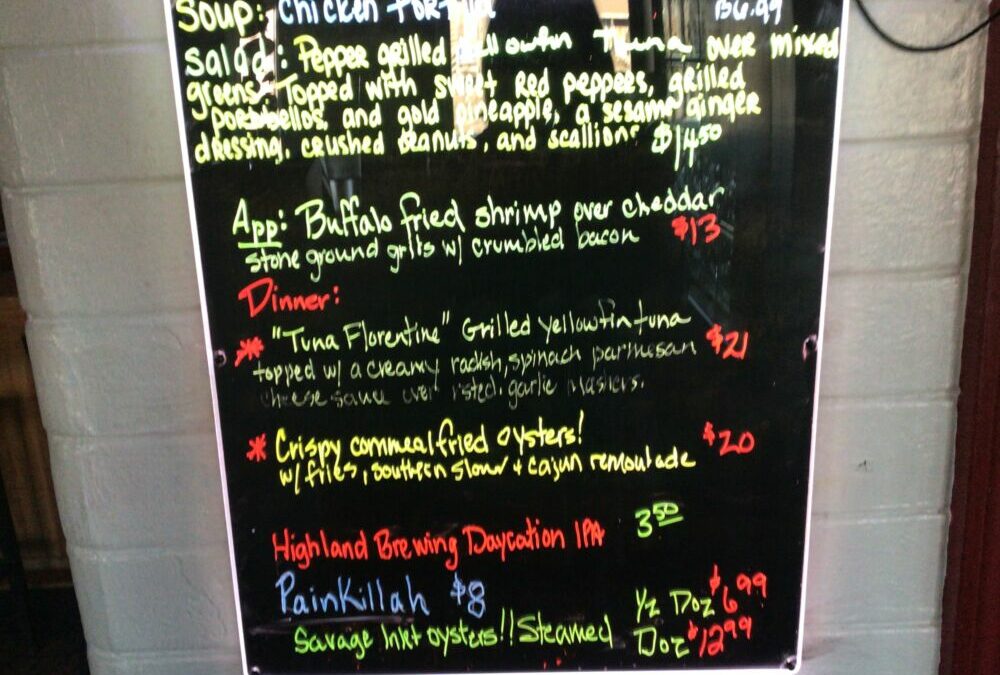 Soup: Chicken Tortilla B6.99
Salad: Pepper grilled yellowfin Tuna over mixed
greens Topped with sweet Red peppers, grilled
portobellos, and gold pineapple, a sesame ginger
dressing, crushed peanuts, and scallions $14.50
App: Buffalo fried shrimp over cheddar
stone ground grits w/ crumbled bacon $13
Dinner:
* "Tuna Florentine" Grilled yellowfin tuna $21
topped w/ a creamy radish, spinach parmesan
cheese sauce over rsted. garlic mashers.
* Crispy cornmeal fried oysters! $20
w/ fries, southern slaw + cajun remoulade
Highland Brewing Daycation IPA 3.50
PainKillah $8
Savage Inlet oysters!! Steamed 1/2 Doz $6.99
Doz $12.99